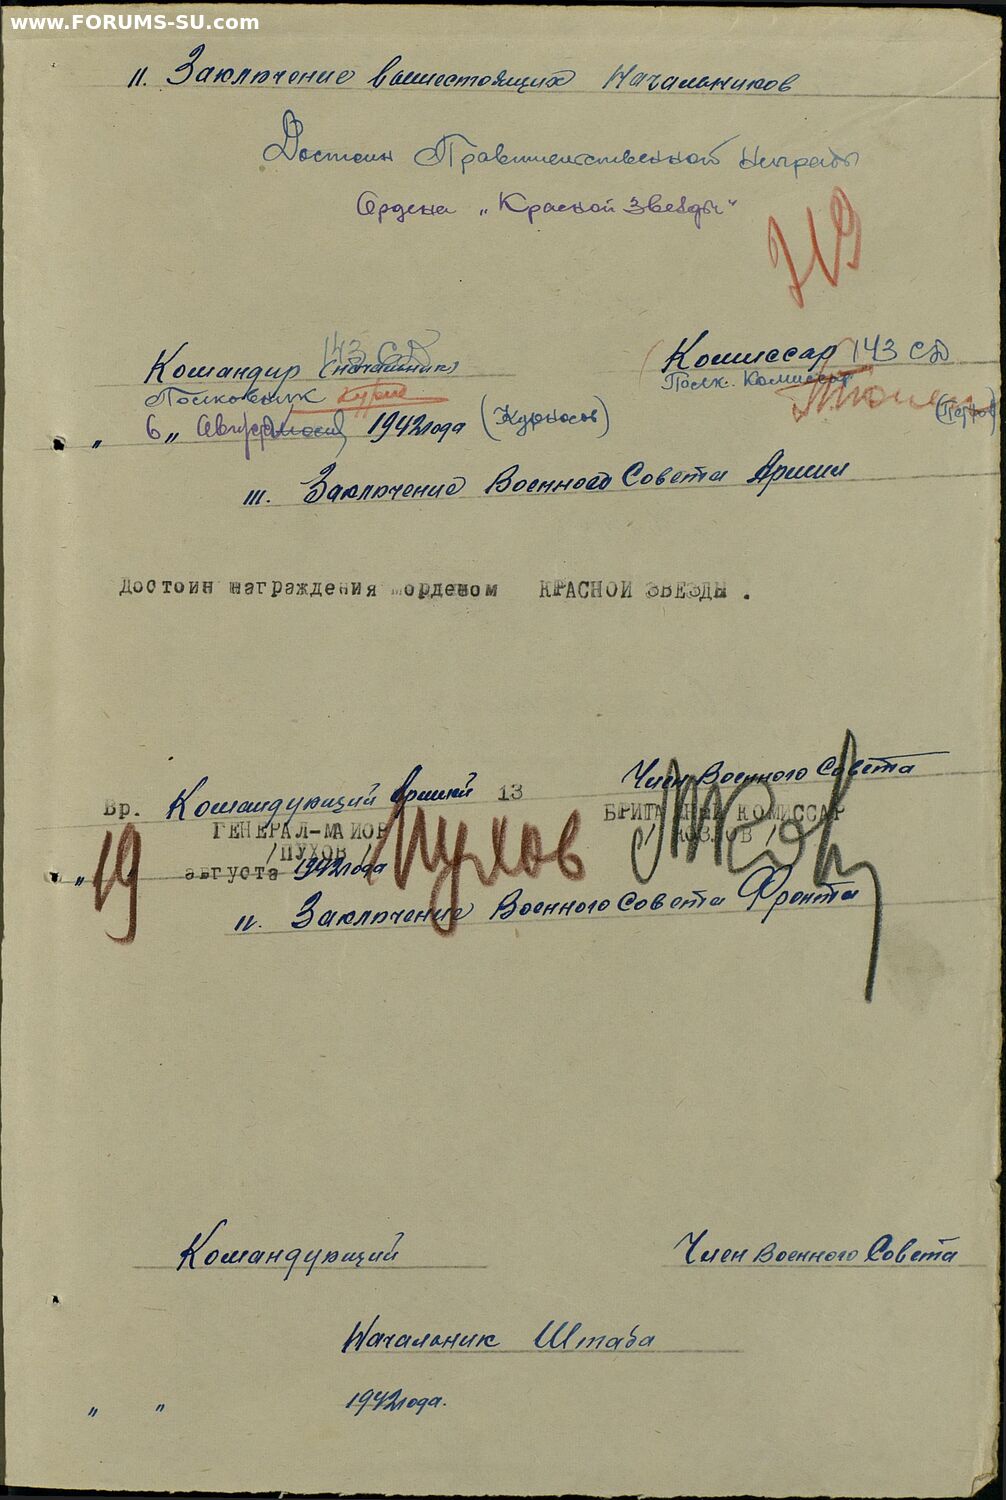 www.FORUMS-SU.com
II. Заключение вышестоящих Начальников
Достоин Правительственной Награды
Ордена „Красной Звезды"
Командир 143 СД (начальник)
Комиссар 143 СД
Полковник
Полк. Комиссар
(Курносов)
" 6 „ Августа 1942 года
III. Заключение Военного Совета Армии
Достоин награждения орденом КРАСНОЙ ЗВЕЗДЫ .
Вр. Командующий Армией 13
Член Военного Совета
ГЕНЕРАЛ-МАЙОР
БРИГАДНЫЙ КОМИССАР
/ПУХОВ/ Пухов
/ КОЗЛОВ /
„ 19 августа 1942 года
IV. Заключение Военного Совета Фронта
Командующий
Член Военного Совета
Начальник Штаба
" " 1942 года.